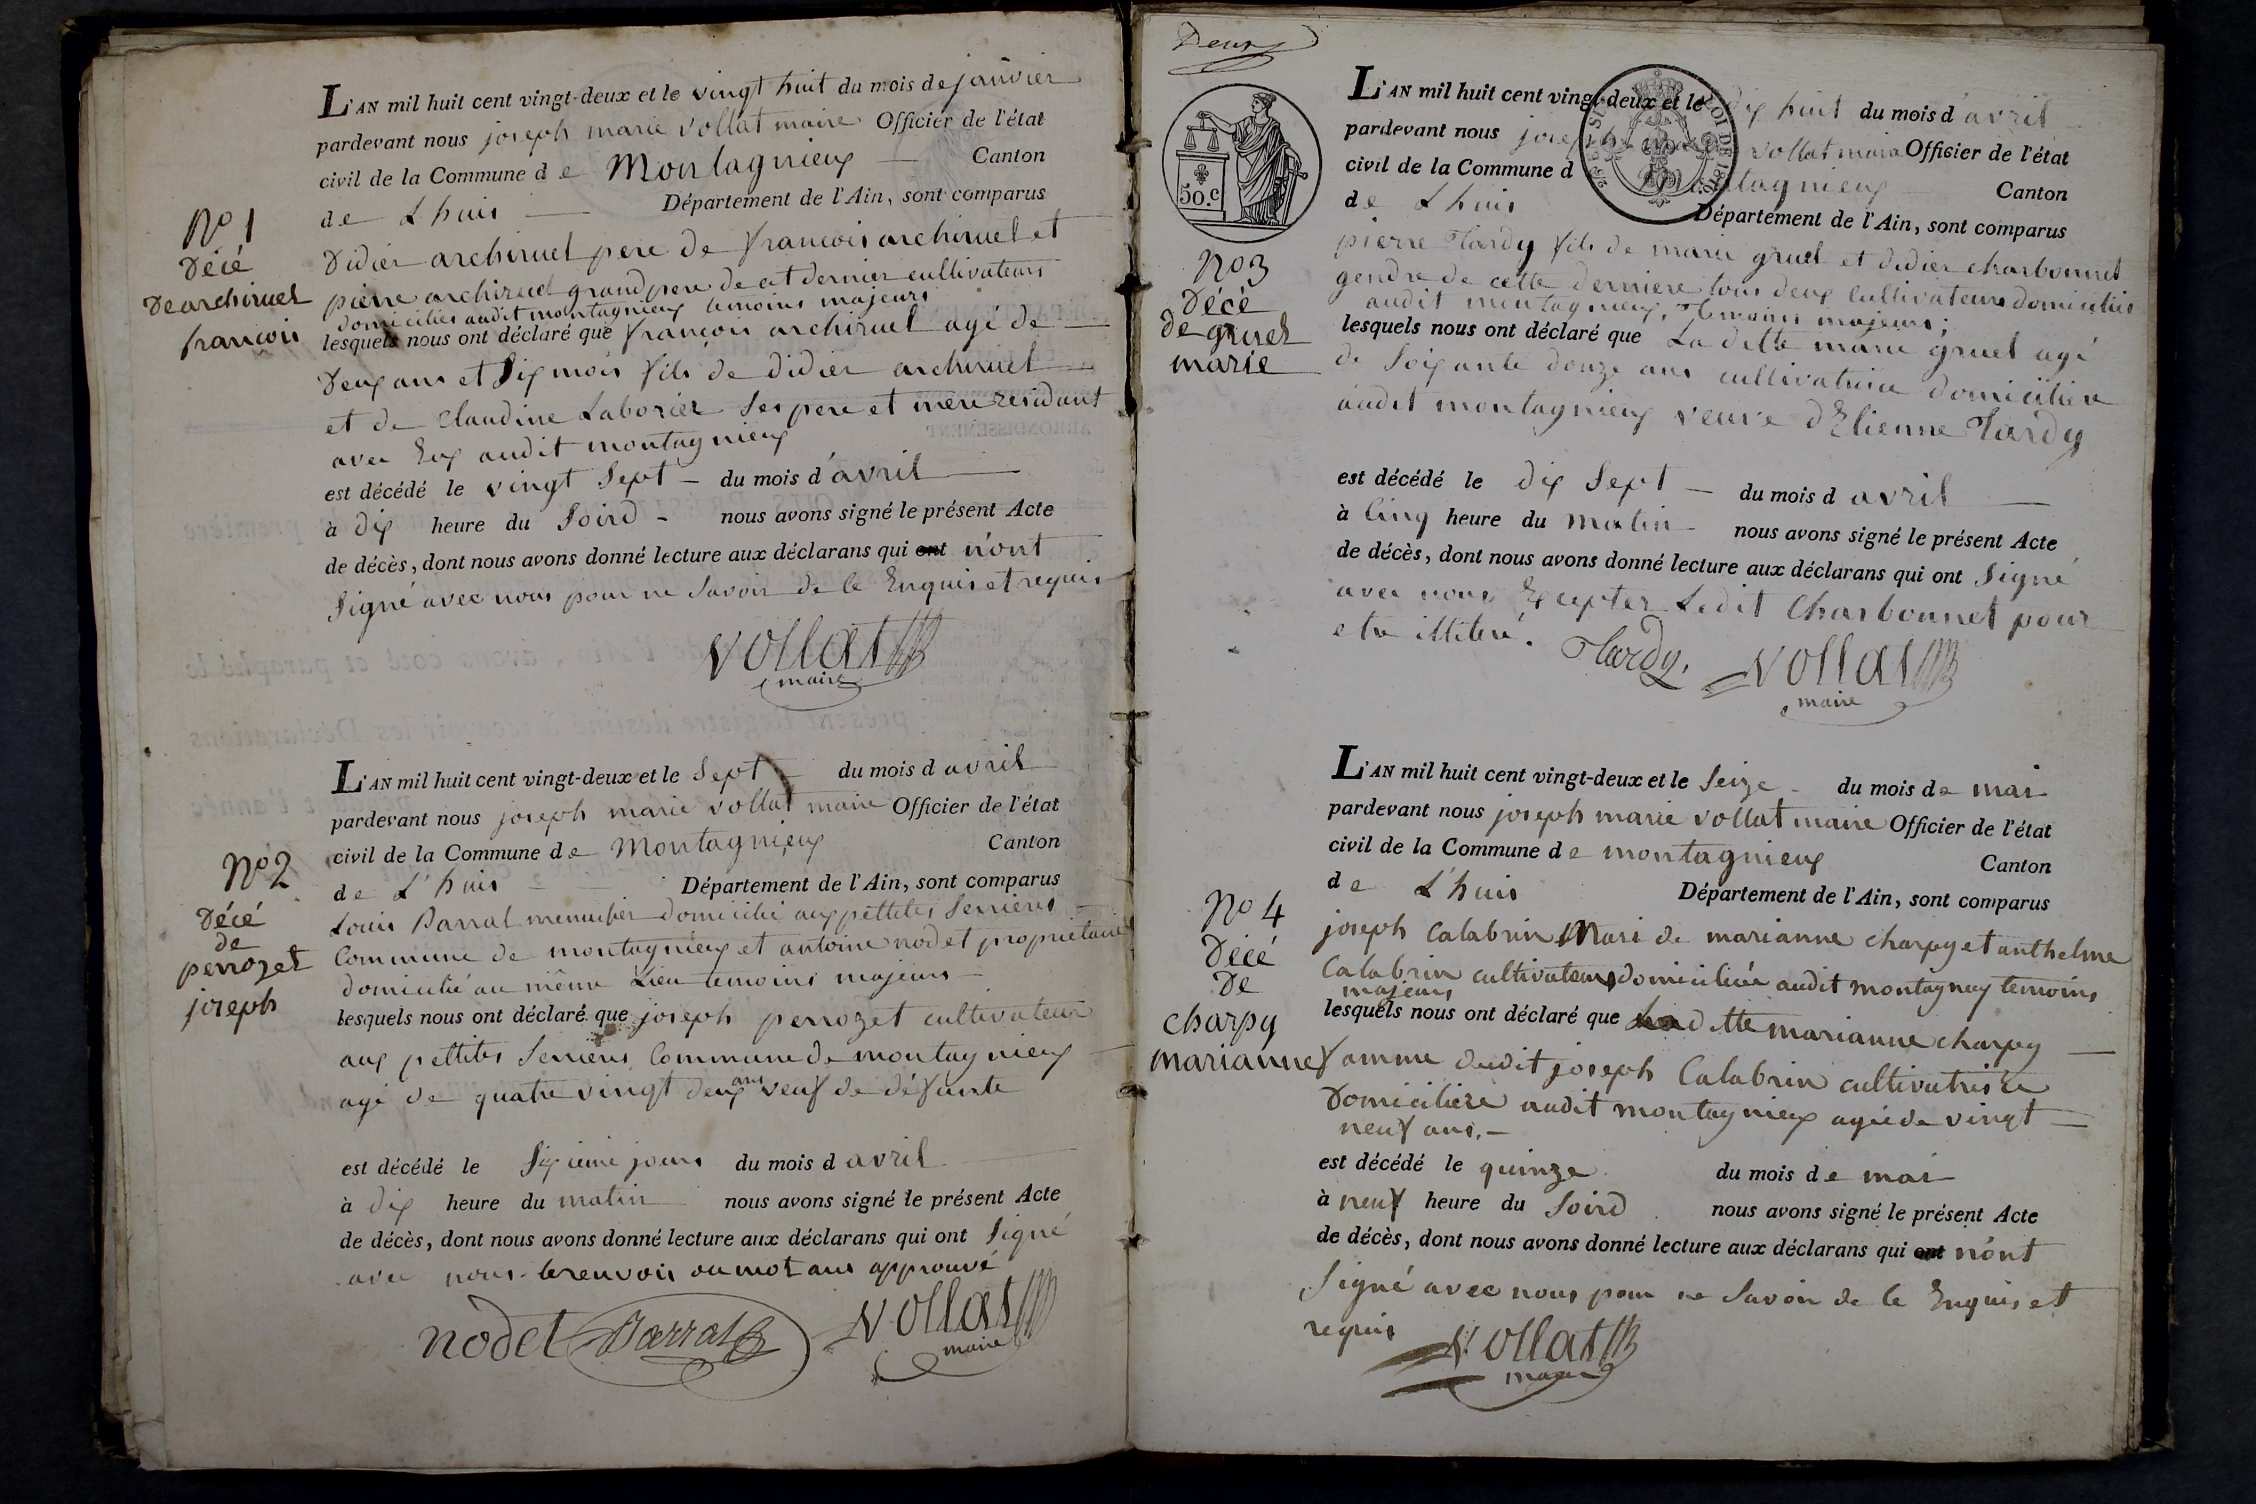 L'AN mil huit cent vingt-deux et le vingt huit du mois de janvier
pardevant nous joseph marie vollat maire Officier de l'état
civil de la Commune de Montagnieux Canton
de Lhuis Département de l'Ain, sont comparus
N° 1
Décé
De archiruel
francois
Didier archiruel pere de francois archiruel et
pierre archiruel grand pere de cet dernier cultivateurs
domiciliés audit montagnieux temoins majeurs
lesquels nous ont déclaré que françois archiruel agé de
Deux ans et Six mois fils de didier archiruel
et de Claudine Laborier Ses pere et mere residant
avec Eux audit montagnieux
est décédé le vingt Sept du mois d'avril
à dix heure du Soird nous avons signé le présent Acte
de décès, dont nous avons donné lecture aux déclarans qui ont n'ont
Signé avec nous pour ne Savoir de le Enquis et requis
vollat
maire
L'AN mil huit cent vingt-deux et le Sept du mois d avril
pardevant nous joseph marie vollat maire Officier de l'état
civil de la Commune de Montagnieux Canton
de L'huis Département de l'Ain, sont comparus
N° 2
Décé
de
perrozet
joseph
Louis Barrat menusier domicilié aux pettites Serrieres
Commune de montagnieux et antoine nodet propriétaire
domicilié au même Lieu temoins majeurs
lesquels nous ont déclaré que joseph perrozet cultivateur
aux pettites Serrieres Commune de montagnieux
agé de quatre vingt deux ans veuf de défunte
est décédé le Sixieme jours du mois d avril
à dix heure du matin nous avons signé le présent Acte
de décès, dont nous avons donné lecture aux déclarans qui ont Signé
avec nous. le renvois ou mot ans approuvé
nodet Barrat vollat
maire
Deux
50.c
L'AN mil huit cent vingt-deux et le dix huit du mois d'avril
pardevant nous joseph marie vollat maire Officier de l'état
civil de la Commune d Montagnieux Canton
de Lhuis Département de l'Ain, sont comparus
N° 3
Décé
de gruel
marie
pierre Tardy fils de marie gruel et didier charbonnet
gendre de cette derniere tous deux Cultivateurs domiciliés
audit montagnieux, Temoins majeurs;
lesquels nous ont déclaré que La ditte marie gruel agé
de Soixante douze ans cultivatrice domiciliere
audit montagnieux veuve d'Etienne Tardy
est décédé le dix Sept du mois d avril
à Cinq heure du matin nous avons signé le présent Acte
de décès, dont nous avons donné lecture aux déclarans qui ont Signé
avec nous Excepter Ledit Charbonnet pour
etre illiteré. Tardy. vollat
maire
L'AN mil huit cent vingt-deux et le Seize du mois de mai
pardevant nous joseph marie vollat maire Officier de l'état
civil de la Commune de montagnieux Canton
de L'huis Département de l'Ain, sont comparus
N° 4
Décé
De
charpy
marianne
joseph Calabrin Mari de marianne charpy et anthelme
Calabrin cultivateurs domiciliée audit montagnieux temoins
majeurs
lesquels nous ont déclaré que La ditte marianne charpy
famme dudit joseph Calabrin cultivatrisce
Domiciliere audit montagnieux agée de vingt
neuf ans.
est décédé le quinze du mois de mai
à neuf heure du Soird nous avons signé le présent Acte
de décès, dont nous avons donné lecture aux déclarans qui ont n'ont
Signé avec nous pour ne Savoir de le Enquis et
requis vollat
maire